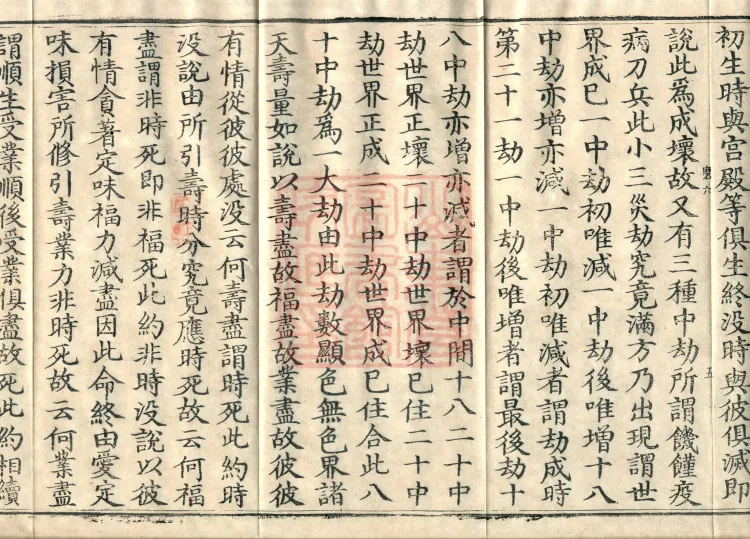 初生時與宮殿等俱生終没時與彼俱滅即
說此爲成壞故又有三種中劫所謂饑饉疫
病刀兵此小三災劫究竟滿方乃出現謂世
界成已一中劫初唯減一中劫後唯增十八
中劫亦增亦減一中劫初唯減者謂劫成時
第二十一劫一中劫後唯增者謂最後劫十
八中劫亦增亦減者謂於中間十八二十中
劫世界正壞二十中劫世界壞已住二十中
劫世界正成二十中劫世界成已住合此八
十中劫爲一大劫由此劫數顯色無色界諸
天壽量如說以壽盡故福盡故業盡故彼彼
有情從彼彼處没云何壽盡謂時死此約時
没說由所引壽時分究竟應時死故云何福
盡謂非時死即非福死此約非時没說以彼
有情貪著定味福力減盡因此命終由愛定
味損害所修引壽業力非時死故云何業盡
謂順生受業順後受業俱盡故死此約相續